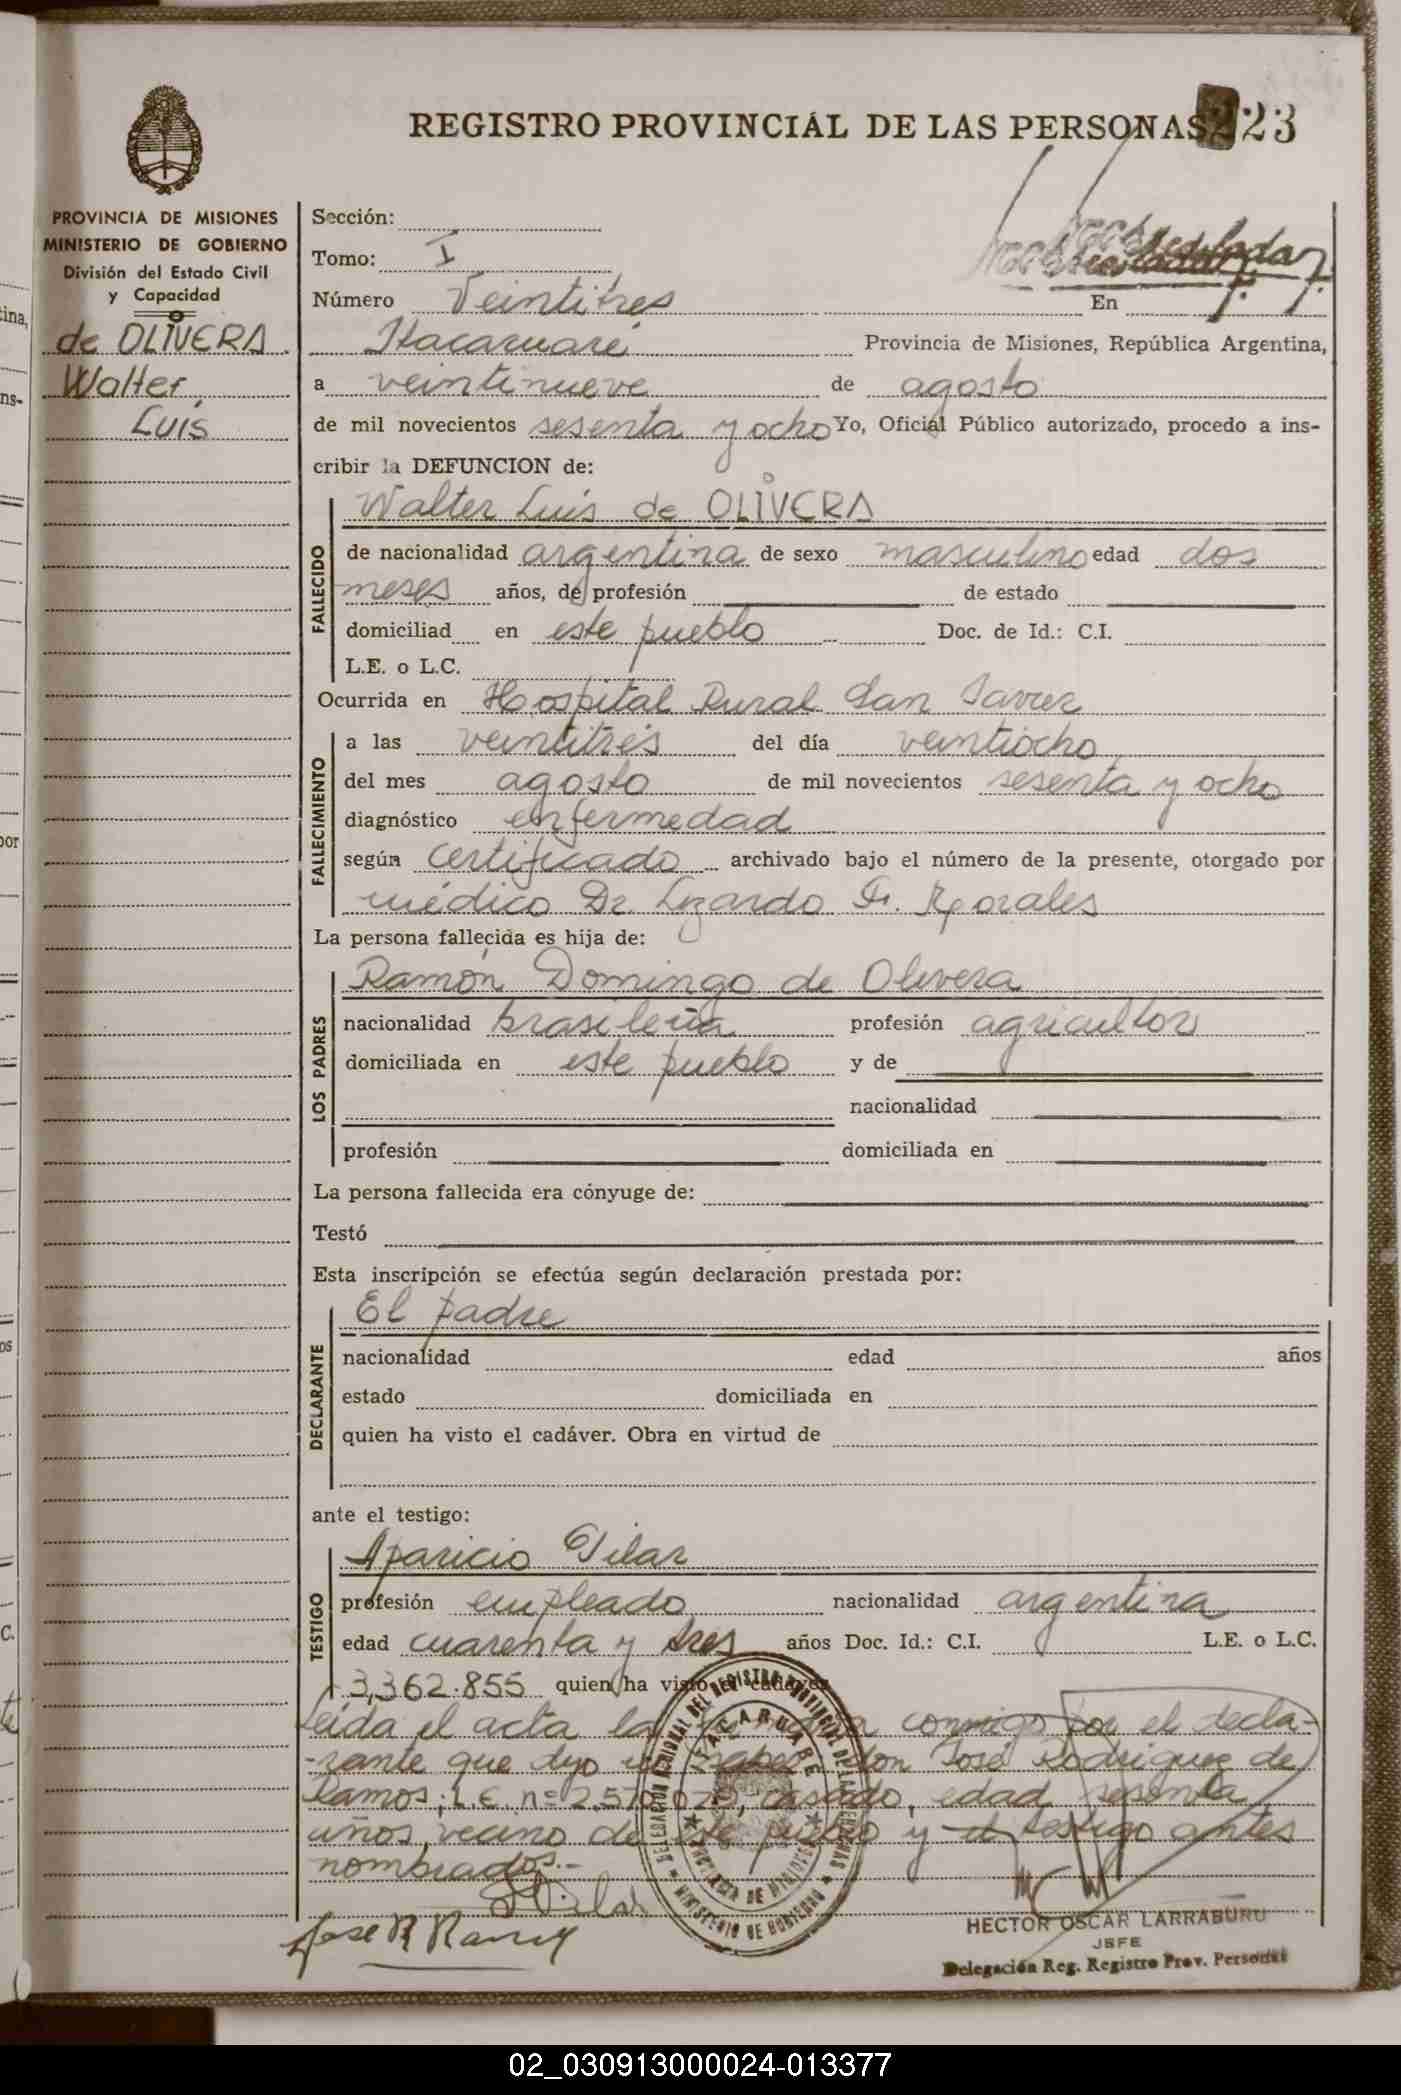 REGISTRO PROVINCIAL DE LAS PERSONAS 23
PROVINCIA DE MISIONES
MINISTERIO DE GOBIERNO
División del Estado Civil
y Capacidad
de OLIVERA
Walter
Luis
Sección:
Tomo: I
Número Veintitres En
Itacaruaré Provincia de Misiones, República Argentina,
a veintinueve de agosto
de mil novecientos sesenta y ocho Yo, Oficial Público autorizado, procedo a ins-
cribir la DEFUNCION de:
FALLECIDO
Walter Luis de OLIVERA
de nacionalidad argentina de sexo masculino edad dos
meses años, de profesión de estado
domiciliad en este pueblo Doc. de Id.: C.I.
L.E. o L.C.
Ocurrida en Hospital Rural San Javier
FALLECIMIENTO
a las veintitrés del día veintiocho
del mes agosto de mil novecientos sesenta y ocho
diagnóstico enfermedad
según certificado archivado bajo el número de la presente, otorgado por
médico Dr. Lizardo Fr. Morales
La persona fallecida es hija de:
LOS PADRES
Ramón Domingo de Olivera
nacionalidad brasileña profesión agricultor
domiciliada en este pueblo y de
nacionalidad
profesión domiciliada en
La persona fallecida era cónyuge de:
Testó
Esta inscripción se efectúa según declaración prestada por:
DECLARANTE
El padre
nacionalidad edad años
estado domiciliada en
quien ha visto el cadáver. Obra en virtud de
ante el testigo:
TESTIGO
Aparicio Pilar
profesión empleado nacionalidad argentina
edad cuarenta y tres años Doc. Id.: C.I. L.E. o L.C.
3,362.855 quien ha visto el cadáver
Leida el acta la conmigo por el decla-
-rante que dijo no saber don José Rodriguez de
Ramos; L.E. nº casado, edad sesenta
años, vecino de este pueblo y el testigo antes
nombrados.-
DELEGACION REGIONAL DEL REGISTRO PROVINCIAL DE LAS PERSONAS
ITACARUARE
PROVINCIA DE MISIONES
MINISTERIO DE GOBIERNO
Pilar
Jose R Ramos
HECTOR OSCAR LARRABURU
JEFE
Delegación Reg. Registro Prov. Personas
02_030913000024-013377